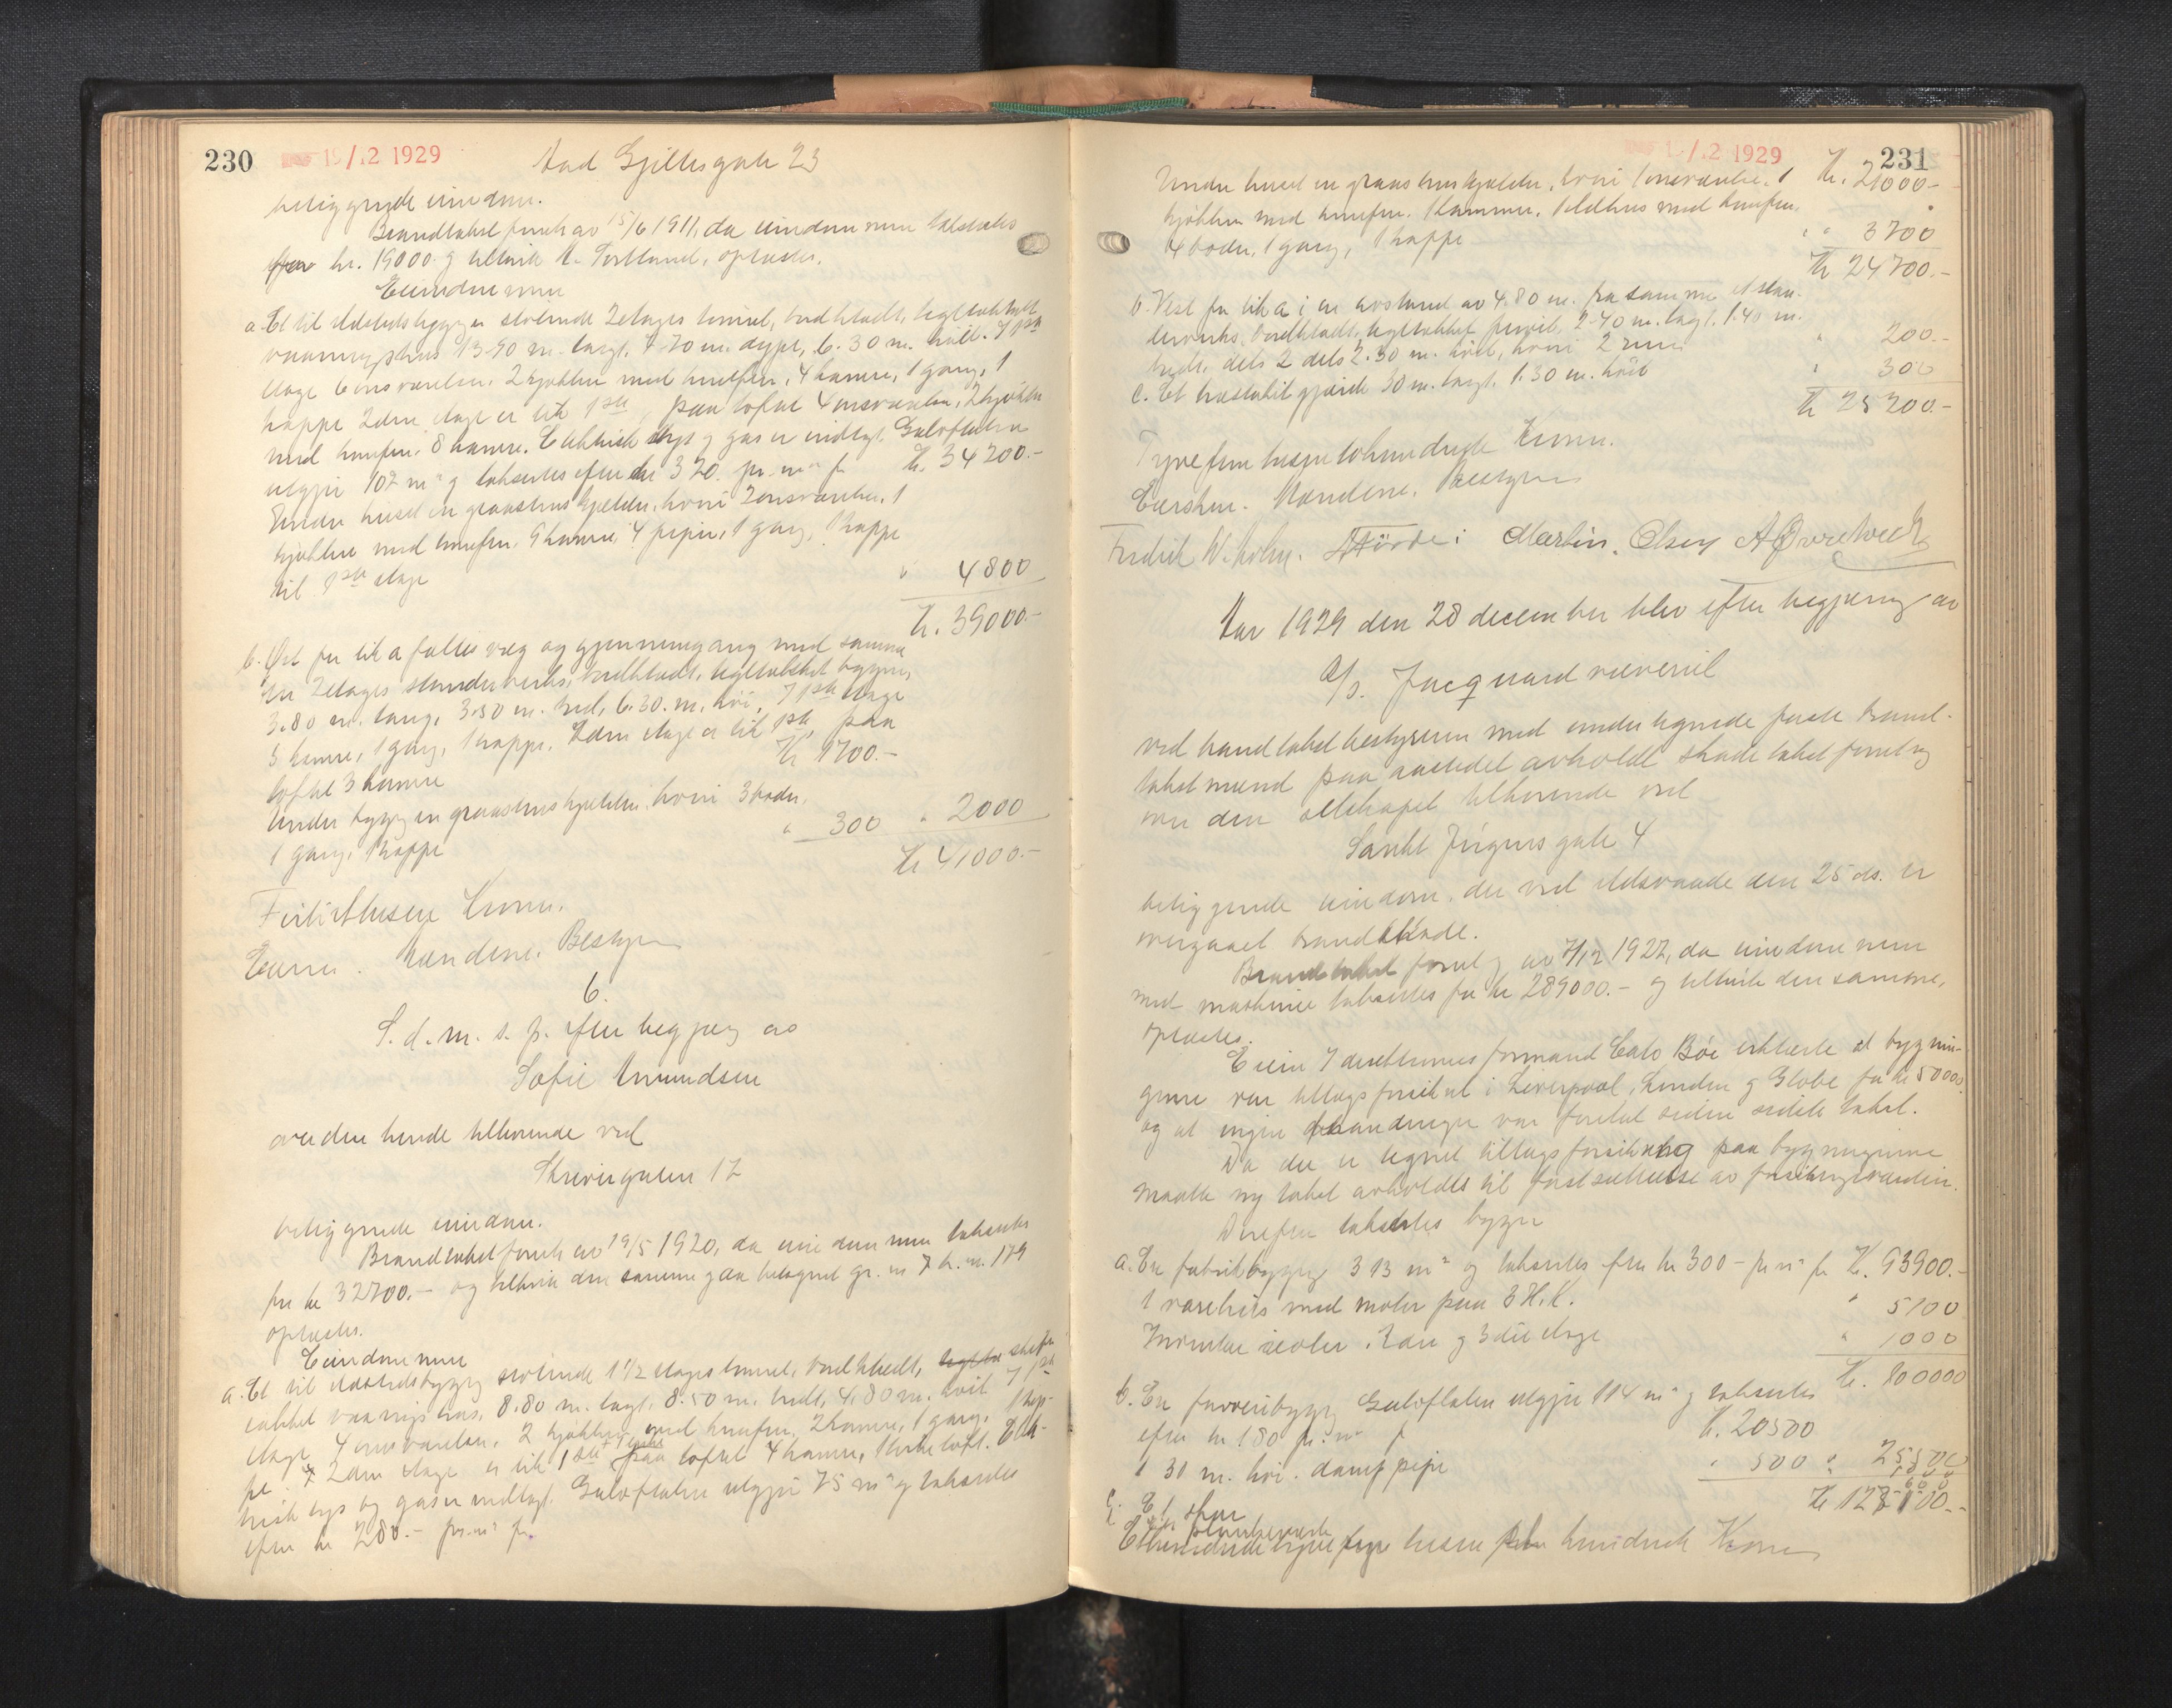 230
19/12 1929
beliggende eiendom.
Brandtakst forret. av 15/6 1911, da eiendommen takstertes
kr. 19000.- og tilhørte oplæstes.
Eiendommen
a. Et til ildstedsbygg en svarende 2 etages tømret, bordklædt, tegltækket
vaaningshus 13.90 m. langt, 7.70 m. dypt, 6.30 m. høit. I 1ste
etage 6 onsværelser, 2 kjøkken med komfur, 4 kamre, 1 gang, 1
trappe 2den etage er lik 1ste, paa loftet 4 onsværelser, 2 kjøkken
med komfur, 8 kamre. Elektrisk lys og gas er indlagt. Gulvflaten
utgjør 107 m² og taksertes efter kr 320 pr. m² for Kr. 34200.-
Under huset en graastenskjælder, hvori 2 onsværelser, 1
kjøkken med komfur, 9 kamre, 4 piper, 1 gang, 1 trappe
til 1ste etage " 4800
Kr. 39000.-
b. Øst for lit a fælles væg og gjennemgang med samme
en 2 etages stenderverks, bordklædt, tegltækket bygning
3.80 m. lang, 3.50 m. bred, 6.30 m. høi. I 1ste etage
3 kamre, 1 gang, 1 trappe. 2den etage er lik 1ste, paa
loftet 3 kamre Kr 1700.-
Under bygg en graastenskjælder, hvori 3 boder,
1 gang, 1 trappe " 300 " 2000
Kr 41000.-
Firtiettusen Kroner.
Eieren. Mændene. Bestyrer
6.
S. d. m. s. f. efter begjær av
Sofie Amundsen
over den hende tilhørende ved
Skivergaten 17
beliggende eiendom.
Brandtakst forret av 19/5 1920, da eiendommen taksertes
for kr 32700.- og tilhørte den samme og da betegnet gr. nr 7 br. nr. 179
oplæstes.
Eiendommen
a. Et til ildstedsbygg svarende 1 1/2 etages tømret, bordklædt, skifer
tækket vaaningshus, 8.80 m. langt, 8.50 m. bredt, 4.80 m. høit. I 1ste
etage 4 onsværelser, 2 kjøkken med komfur, 2 kamre, 1 gang, 1 trap-
pe. 2den etage er lik 1ste paa loftet 4 kamre, 1 tørkeloft. Elek-
trisk lys og gas er indlagt. Gulvflaten utgjør 75 m² og taksertes
efter kr 280.- pr. m² for
231
1929
Kr. 21000.-
Under huset en graastenskjælder, hvori 1 onsværelse, 1
kjøkken med komfur, 1 kammer, 1 ildhus med komfur,
4 boder, 1 gang, 1 trappe " 3700
Kr 24700.-
b. Vest for lit a i en avstand av 4.80 m. fra samme et sten-
derverks, bordklædt, tegltækket privet, 2.40 m. langt, 1.40 m.
bredt, dels 2 dels 2.30 m. høit, hvori 2 rum " 200.-
C. Et træstakit gjærde 30 m. langt, 1.30 m. høit " 300
Kr 25200.-
Tyvefem tusen tohundrede Kroner.
Eiersken. Mændene. Bestyrer
Fredrik W. Holm. Martin Olsen
Aar 1929 den 28 december blev efter begjæring av
A/S. Jacquard væveriet
ved brandtakstbestyreren med undertegnede faste brand-
takstmænd paa aastedet avholdt skadetakstforretng
over den selskapet tilhørende ved
Sankt Jørgens gate 4
beliggende eiendom, der ved ildsvaade den 25 ds. er
overgaaet brandskade.
Brandtakst forretng av 7/12 1927, da eiendommen
med maskiner taksertes for kr 289000.- og tilhørte den samme,
oplæstes.
Eieren v direktionens formand Cato Bøe erklærte at bygnin-
gene var tillægsforsikret i Liverpool, London og Globe for kr 50000
og at ingen forandringer var foretat siden sidste takst.
Da der er tegnet tillægsforsikring paa bygningene
maatte ny takst avholdes til fastsættelse av forsikringsværdien.
Derefter taksertes bygn
a. En fabrikbygg 313 m² og taksertes efter kr 300.- pr m² for Kr. 93900.-
1 vareheis med motor paa 3 H.K. " 5100
2den og 3die etage " 1000
Kr. 100000
b. En farveribygg Gulvflaten utgjør 114 m² og taksertes
efter kr 180 pr. m² for Kr. 20500
1 30 m. høi damppipe " 500
C. Et skur
Kroner